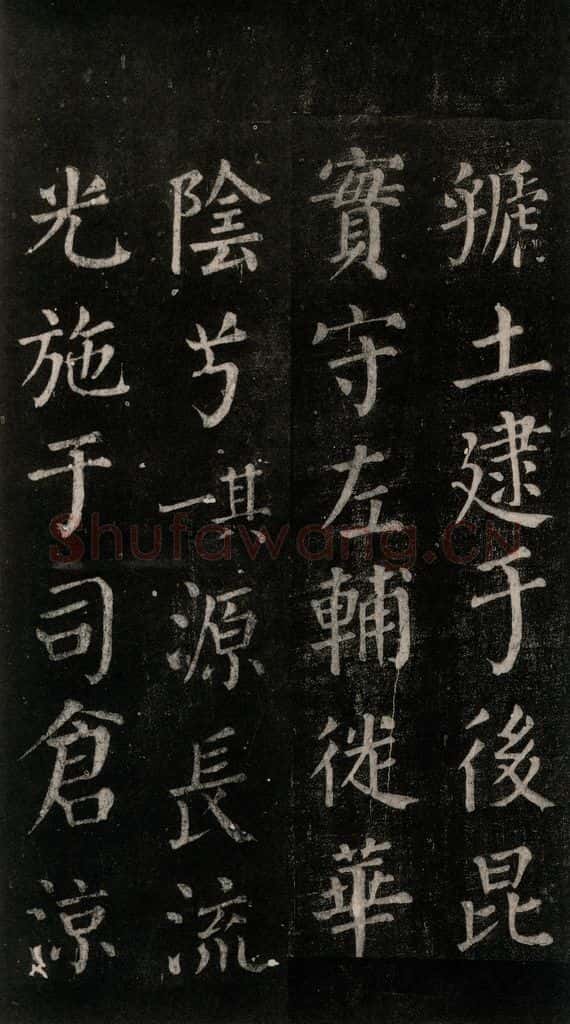 虢土建于後昆
實守左輔徙華
陰兮其一源長流
光施于司倉涼
Shufawang.CN